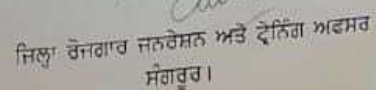 ਜਿਲ੍ਹਾ ਰੋਜਗਾਰ ਜਨਰੇਸ਼ਨ ਅਤੇ ਟ੍ਰੇਨਿੰਗ ਅਫਸਰ
ਸੰਗਰੂਰ।